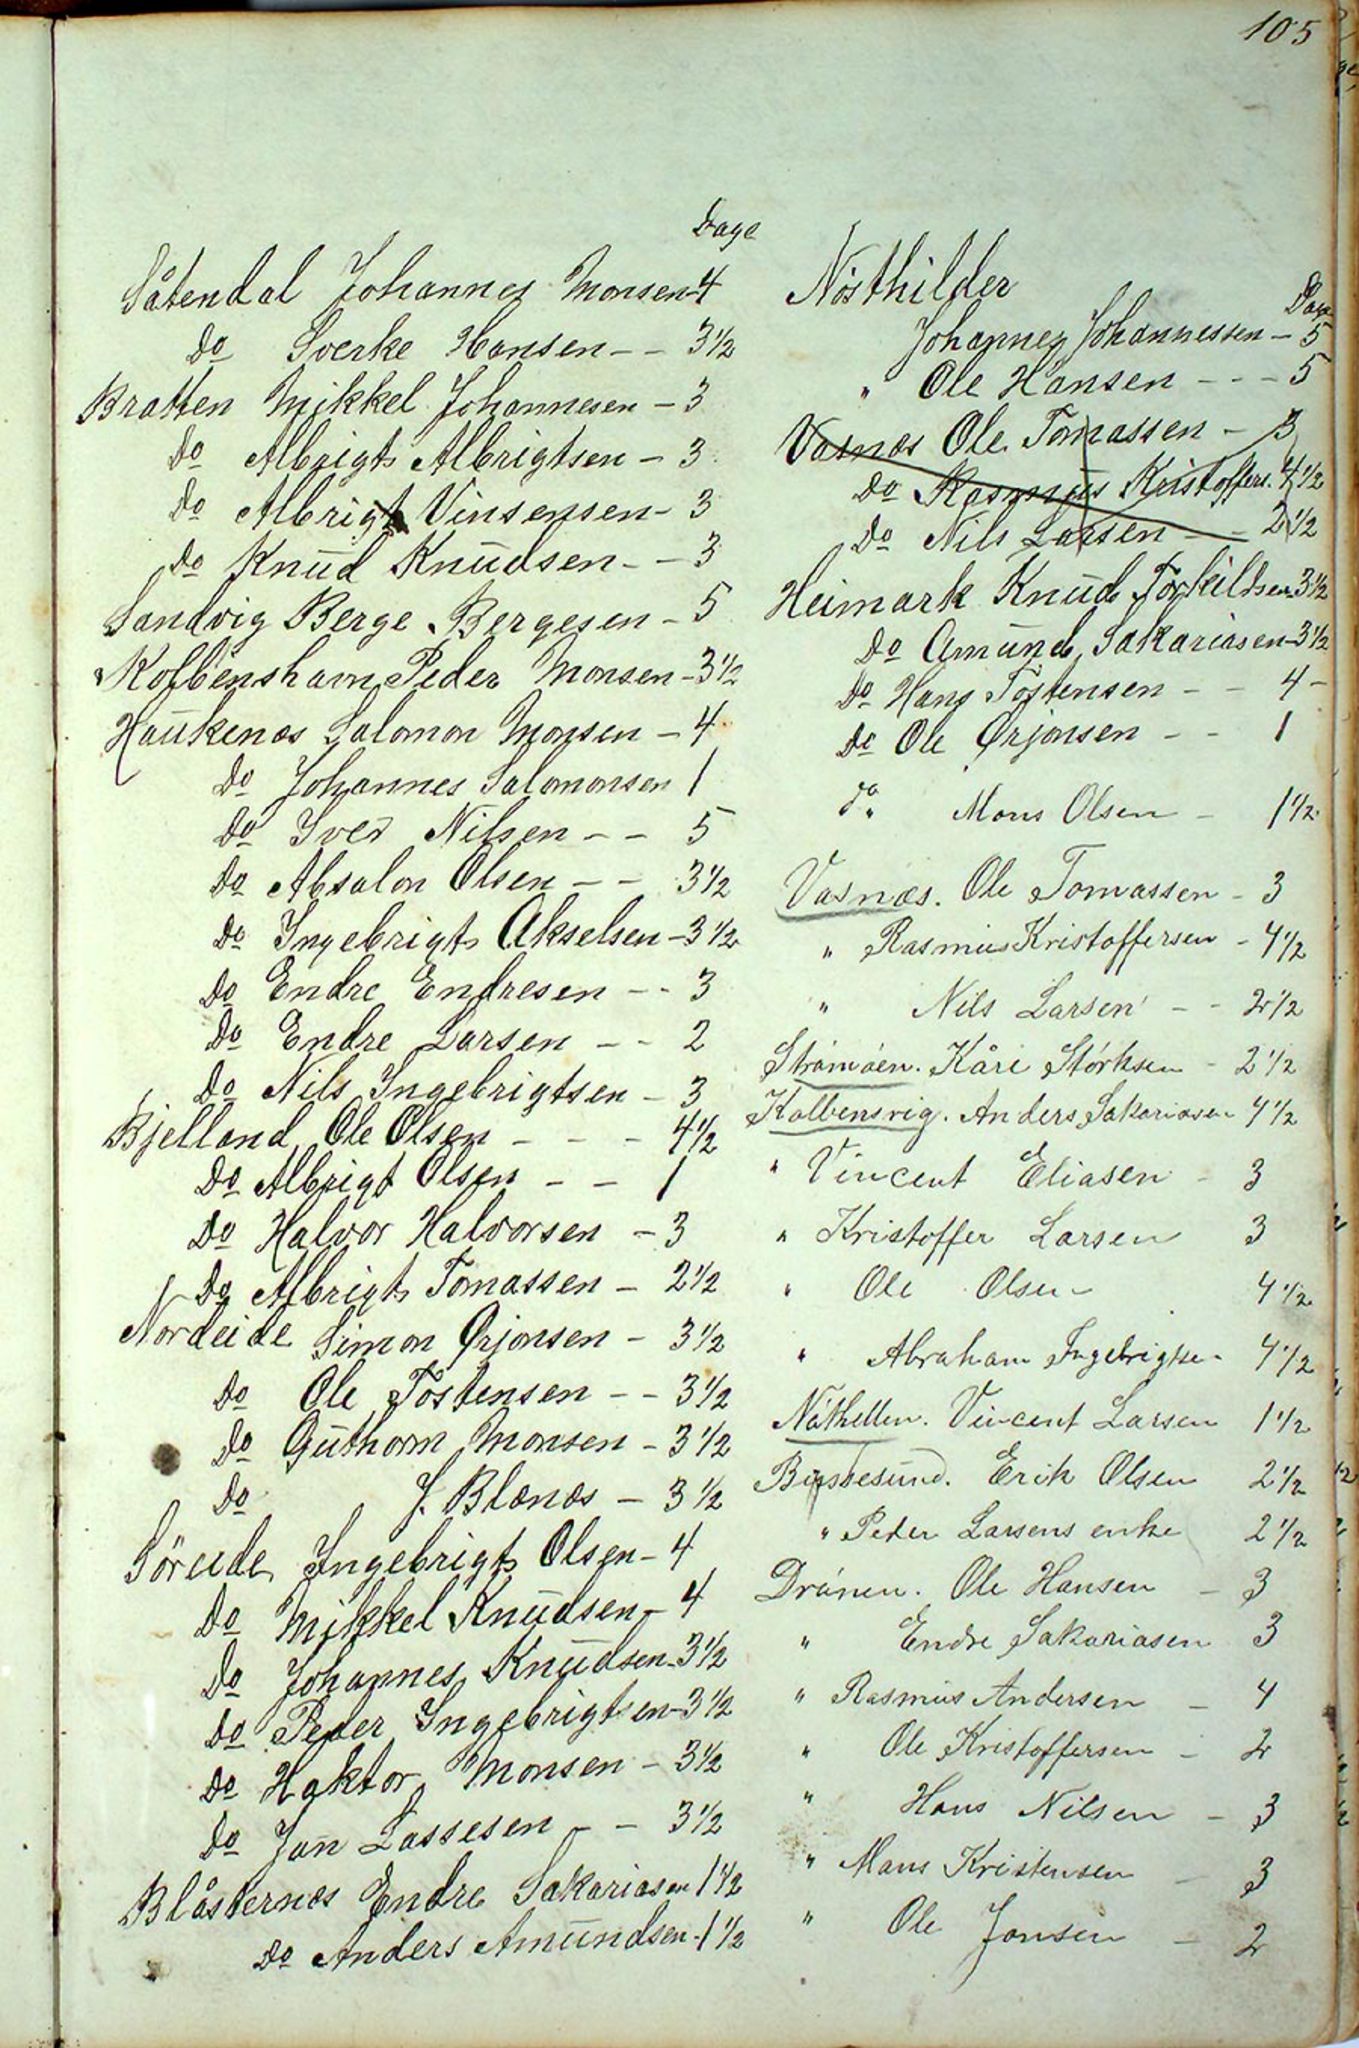 105
Dage
Såtendal Johannes Monsen - 4
Do Sverke Hansen - - 3 1/2
Bratten Mikkel Johannesen - 3
Do Albrigt Albrigtsen - 3
Do Albrigt Vinsensen - 3
Do Knud Knudsen - - 3
Sandvig Berge Bergesen - 5
Kolbenshavn Peder Monsen - 3 1/2
Haukenæs Salomon Monsen - 4
Do Johannes Salomonsen 1
Do Iver Nilsen - - 5
Do Absalon Olsen - - 3 1/2
Do Ingebrigt Akselsen - 3 1/2
Do Endre Endresen - - 3
Do Endre Larsen - - 2
Do Nils Ingebrigtsen - 3
Bjelland Ole Olsen - - - 4 1/2
Do Albrigt Olsen - - 1
Do Halvor Halvorsen - 3
Do Albrigt Tomassen - 2 1/2
Nordeide Simon Ørjonsen - 3 1/2
Do Ole Tostensen - - 3 1/2
Do Guthorm Monsen - 3 1/2
Do J. Blænæs - 3 1/2
Söreide Ingebrigt Olsen - 4
Do Mikkel Knudsen - 4
Do Johannes Knudsen - 3 1/2
Do Peder Ingebrigtsen - 3 1/2
Do Haktor Monsen - 3 1/2
Do Jan Lassesen - - 3 1/2
Blåsternes Endre Sakariasen 1 1/2
Do Anders Amundsen - 1 1/2
Nösthilder
Dage
Johannes Johannessen - 5
" Ole Hansen - - - 5
Vasnæs Ole Tomassen - 3
Do Rasmus Kristoffers. 4 1/2
Do Nils Larsen - - 2 1/2
Heimark Knud Torkildsen - 3 1/2
Do Amund Sakariasen - 3 1/2
Do Hans Tostensen - - 4 -
Do Ole Ørjonsen - - 1
do " Mons Olsen - 1 1/2
Vasnæs. Ole Tomassen - 3
" Rasmus Kristoffersen - 4 1/2
" Nils Larsen - - 2 1/2
Strømøen. Kåre Störksen - 2 1/2
Kolbensvig. Anders Sakariasen 4 1/2
" Vincent Eliasen - 3
" Kristoffer Larsen 3
" Ole Olsen 4 1/2
" Abraham Ingebrigtsen 4 1/2
Nöthellen. Vincent Larsen 1 1/2
Erik Olsen 2 1/2
" Peder Larsens enke 2 1/2
Drånen. Ole Hansen - 3
" Endre Sakariasen 3
" Rasmus Andersen - 4
" Ole Kristoffersen - 2
" Hans Nilsen - 3
" Mans Kristensen - 3
" Ole Jansen - 2